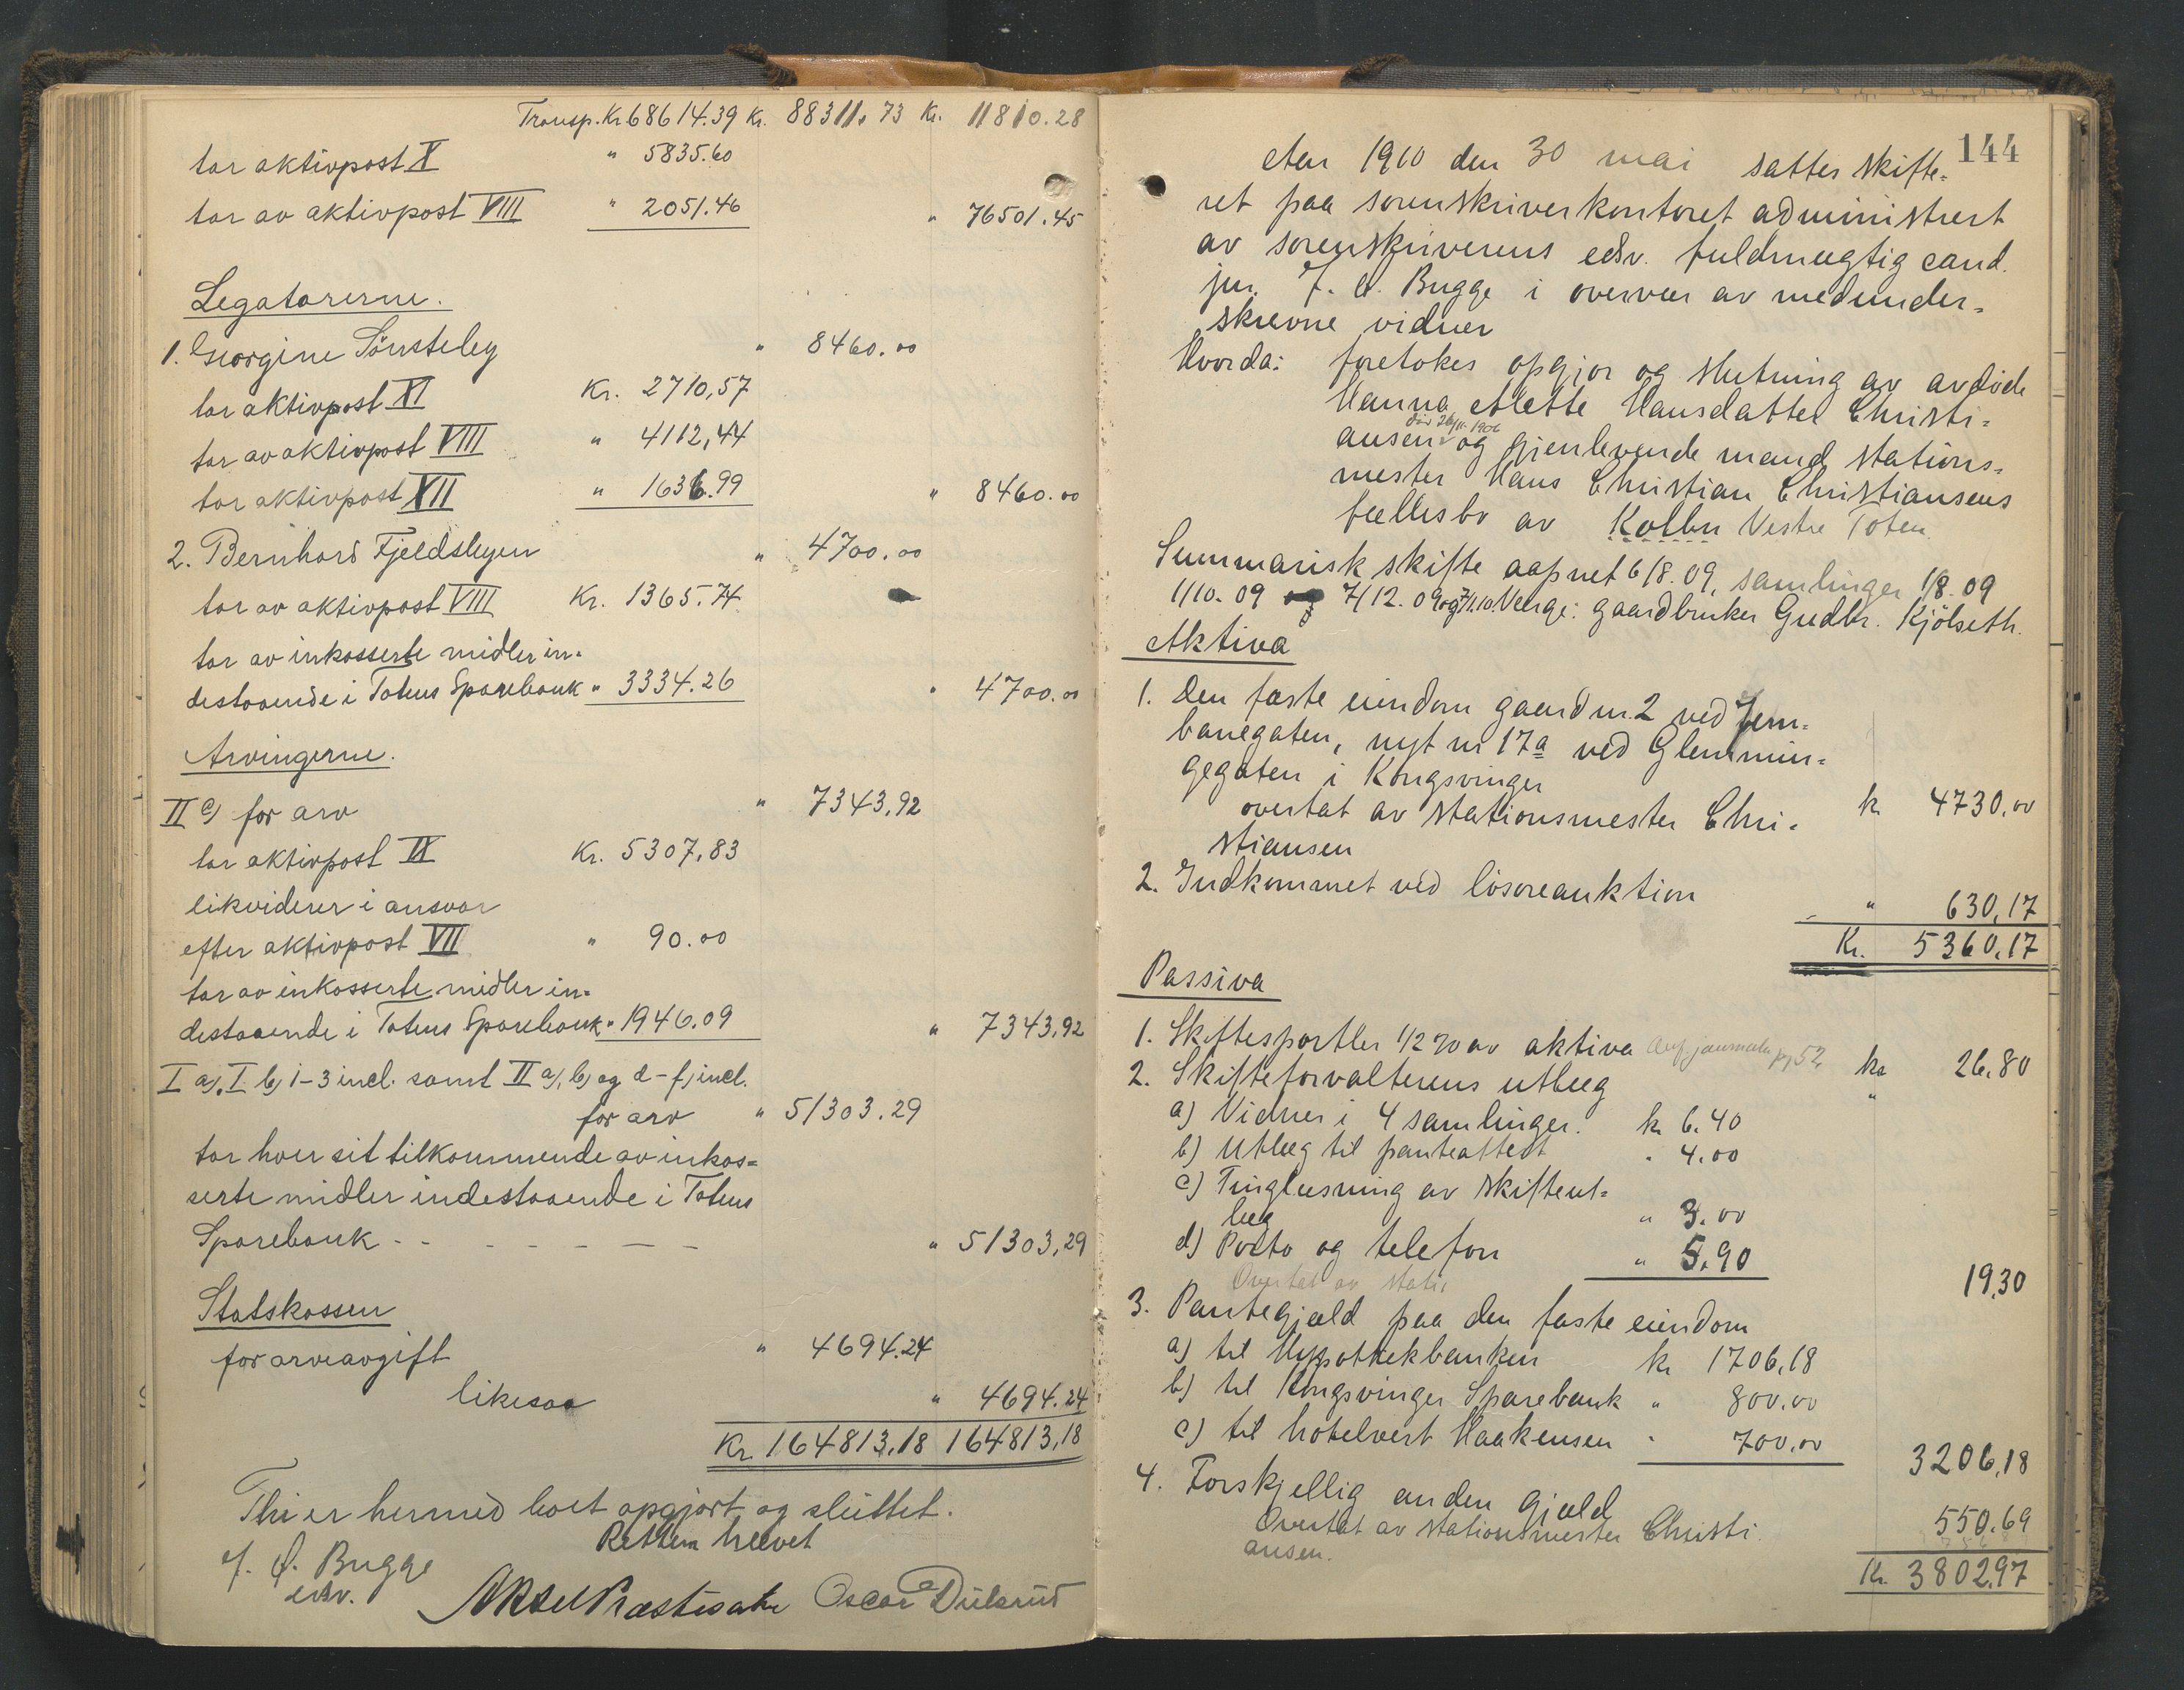 Transp. Kr. 68614.39 Kr. 88311.73 Kr. 11810.28
tar aktivpost X " 5835.60
tar av aktivpost VIII " 2051.46 " 76501.45
Legatarerne.
1. Georgine Sönsteby " 8460.00
tar aktivpost XI Kr. 2710,57
tar av aktivpost VIII " 4112,44
tar aktivpost XII " 1636.99 " 8460.00
2. Bernhard Fjeldshagen " 4700.00
tar av aktivpost VIII Kr. 1365.74
tar av inkasserte midler in-
destaaende i Totens Sparebank " 3334.26 " 4700.00
Arvingerne.
II c) for arv " 7343,92
tar aktivpost IX Kr. 5307,83
likviderer i ansvar
efter aktivpost VII " 90.00
tar av inkasserte midler in-
destaaende i Totens Sparebank " 1946.09 " 7343,92
I a), I b) 1-3 incl. samt II a), b) og d-f) incl.
for arv " 51303.29
tar hver sit tilkommende av inkas=
serte midler indestaaende i Totens
Sparebank - - - - - - " 51303,29
Statskassen
for arveavgift " 4694.24
likesaa " 4694.24
Kr. 164813,18 164813,18
Thi er hermed boet opgjort og sluttet.
Retten hævet
J. Ø. Bugge
edsv.
Aksel Præstesæter Oscar Diilerud
144
Aar 1910 den 30 mai sattes skifte=
ret paa sorenskriverkontoret administrert
av sorenskriverens edsv. fuldmægtig cand.
jur. J. Ø. Bugge i overvær av medunder=
skrevne vidner
Hvorda: foretokes opgjør og slutning av avdøde
Hanna Mette Hansdatter Christi=
død 26/11 1906
ansen og gjenlevende mand stations=
mester Hans Christian Christiansens
fællesbo av Kolbu Vestre Toten.
Summarisk skifte aapnet 6/8.09, samlinger 1/8.09
1/10.09 7/12.09 og 7/1.10. Verge: gaardbruker Gudbr. Kjölseth.
Aktiva
1. Den faste eiendom gaard nr. 2 ved Jern=
banegaten, nyt nr 17a ved Glemmin=
gegaten i Kongsvinger
overtat av stationsmester Chri= kr 4730.00
stiansen
2. Indkommet ved lösöreauktion " 630,17
Kr. 5360,17
Passiva
1. Skiftesportler 1/2 % av aktiva Anf. journalen p. 52 kr 26.80
2. Skifteforvalterens utlæg "
a) Vidner i 4 samlinger. kr 6.40
b) Utlæg til panteattest " 4.00
c) Tinglæsning av skifteut=
læg " 3.00
d) Porto og telefon " 5.90 19,30
Overtat av stats
3. Pantegjæld paa den faste eiendom
a) til Hypothekbanken kr 1706,18
b) til Kongsvinger Sparebank " 800.00
c) til hotelvert Haakensen " 700.00 3206,18
4. Forskjellig anden gjæld 550.69
Overtat av stationsmester Christi
ansen.
Kr. 3802.97